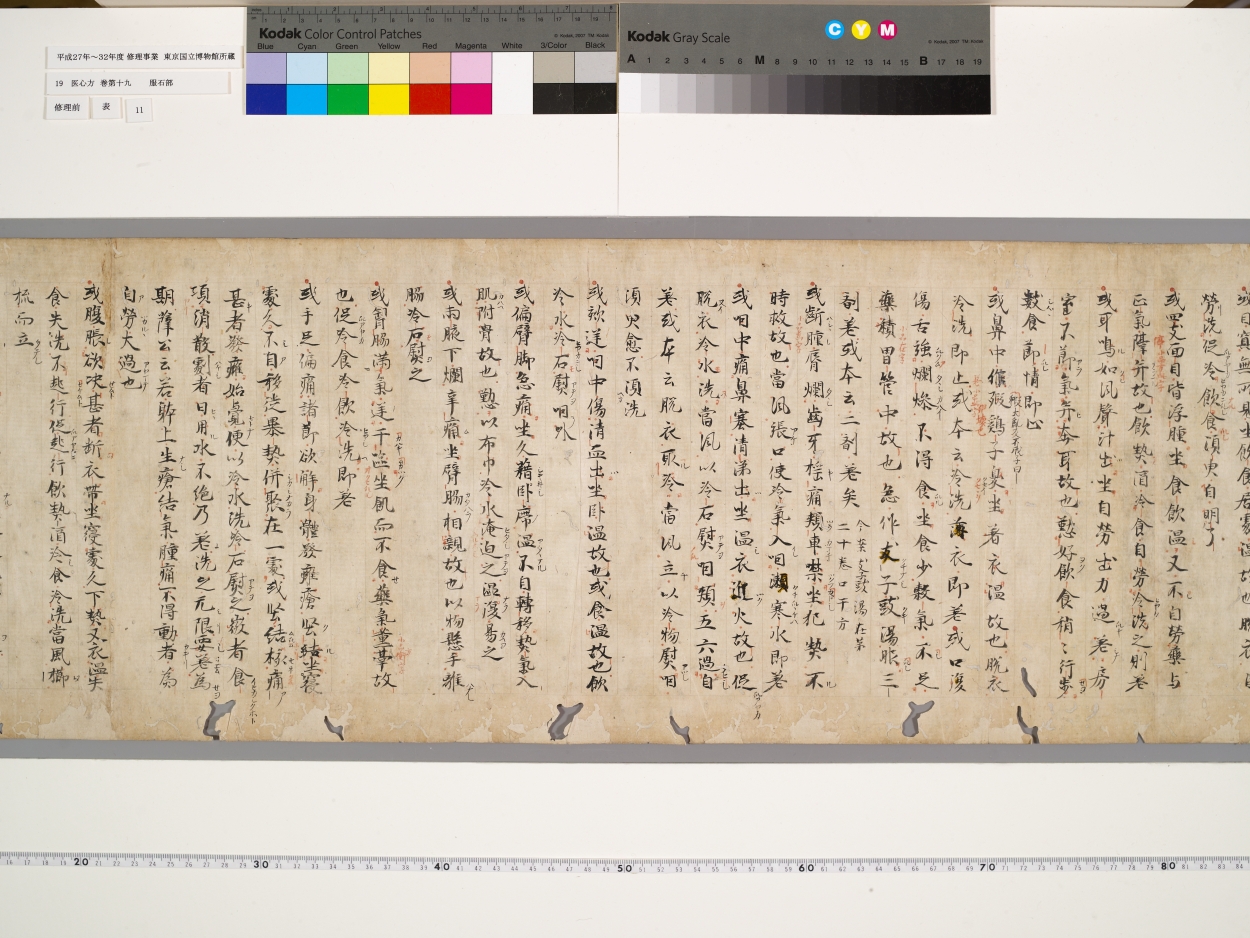 平成27年～32年度 修理事業 東京国立博物館所蔵
19 医心方 巻第十九 服石部
修理前 表 11
Kodak Color Control Patches
© Kodak, 2007 TM: Kodak
Blue Cyan Green Yellow Red Magenta White 3/Color Black
Kodak Gray Scale
C Y M
© Kodak, 2007 TM: Kodak
A 1 2 3 4 5 6 M 8 9 10 11 12 13 14 15 B 17 18 19
勞洗促冷飲食須臾自明了
或四支面目皆浮腫坐食飲温又不自勞藥与
正氣隔并故也飲熱酒冷食自勞冷洗之則差
或耳鳴如風聲汁出坐自勞出力過差房
室不節氣并奔耳故也懃好飲食稍々行歩
數食節情即止
或鼻中作𣨛鷄子臭坐着衣温故也脱衣
冷洗即止或本云冷洗薄衣即差或口復
傷舌強爛燥不得食坐食少穀氣不足
藥積胃管中故也急作支子豉湯服三
劑差或本云二劑差矣
或斷腫脣爛齒牙揺痛頬車禁坐犯熱不
時救故也當風張口使冷氣入咽漱寒水即差
或咽中痛鼻塞清涕出坐温衣近火故也促
脱衣冷水洗當風以冷石熨咽顙五六過自
差或本云脱衣取冷當風立以冷物熨咽
須臾愈不須洗
或欬逆咽中傷清血出坐卧温故也或食温故也飲
冷水冷石熨咽外
或偏臂脚急痛坐久藉卧席温不自轉移熱氣入
肌附骨故也懃以布巾冷水淹迫之温復易之
或兩腋下爛辛痛坐臂脇相親故也以物懸手離
脇冷石熨之
或胷脇滿氣逆干嘔坐飢而不食藥氣熏膏故
也促冷食冷飲冷洗即差
或手足偏痛諸節欲解身體發癰瘡坚結坐寢
處久不自移徙暴熱併聚在一處或坚結核痛
甚者發癰始覺便以冷水洗冷石熨之微者食
項消散劇者日用水不絶乃差洗之无限要差爲
期薛公云若幹上生瘡結氣腫痛不得動者爲
自勞大過也
或腹脹欲决甚者斷衣帶坐寢處久下熱又衣温失
食失洗不起行促起行飲熱酒冷食冷洗當風櫛
梳而立
20 30 40 50 60 70 80